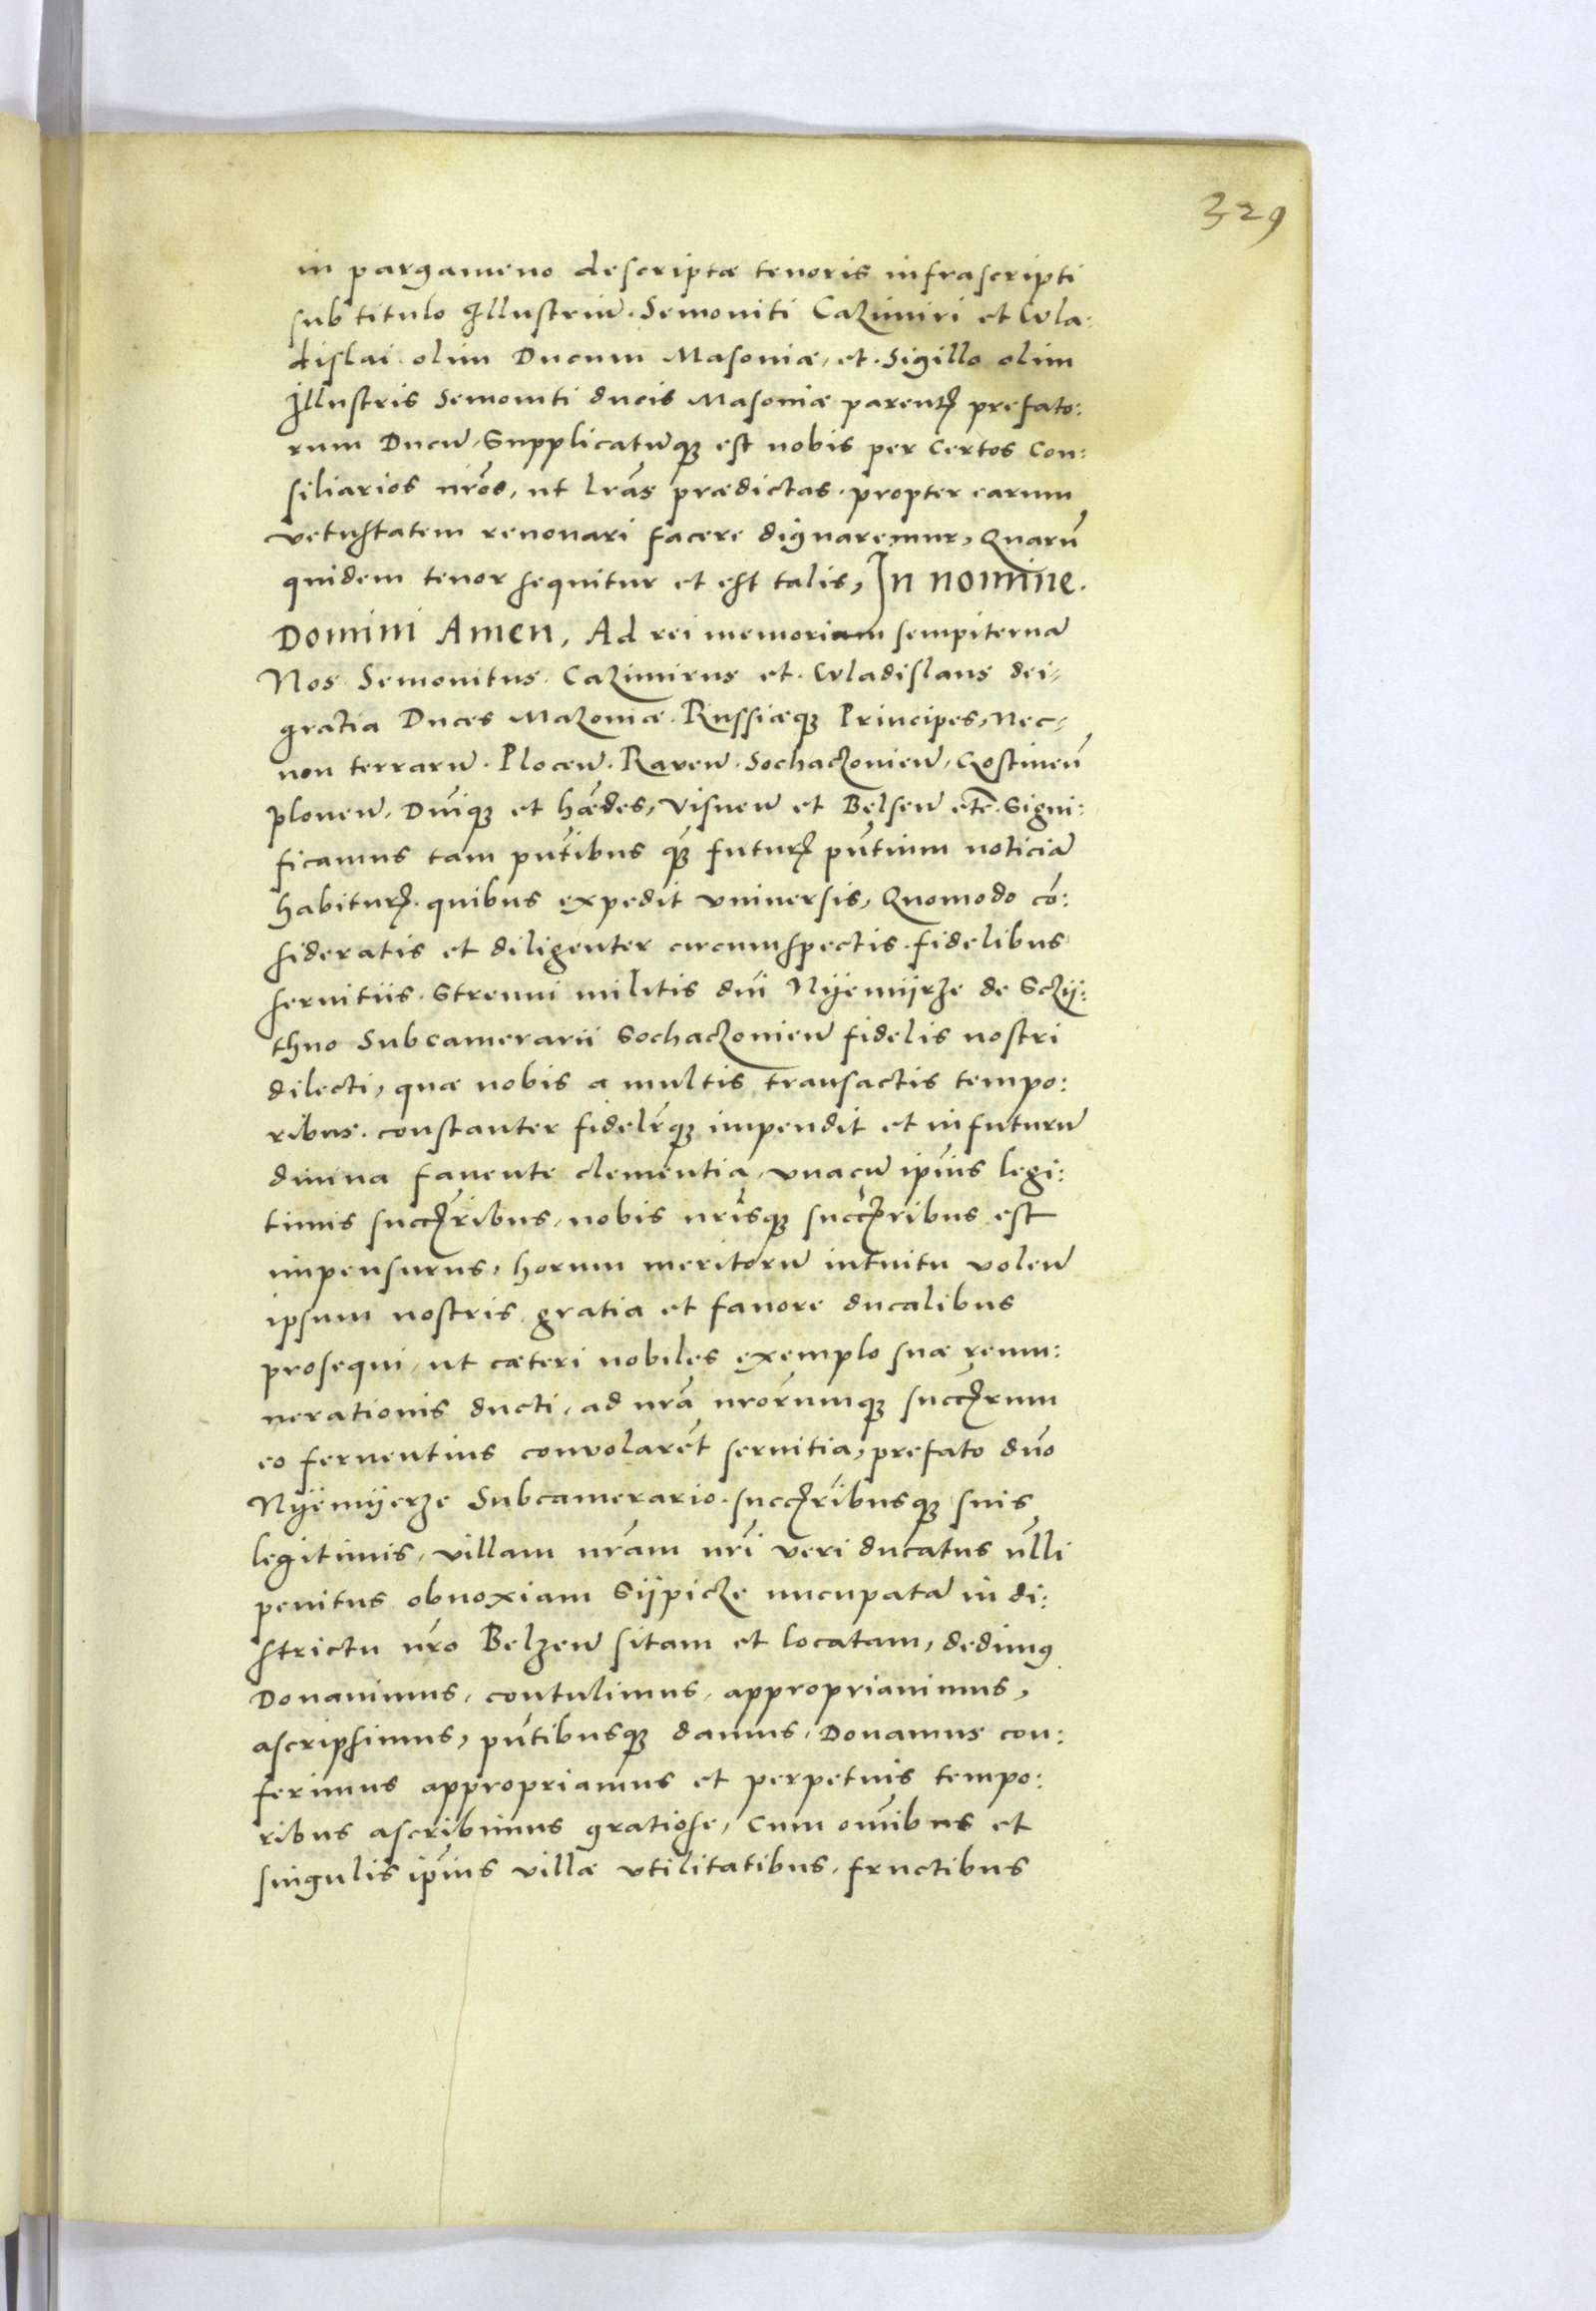 329
in pargameno descriptæ tenoris infrascripti
sub titulo Illustriū. Semoviti Cazimiri et Wla:
dislai olim Ducum Masoviæ, et Sigillo olim
Illustris Semoviti ducis Masoviæ parentꝭ prefato:
rum Ducū, Supplicatūqꝫ est nobis per certos Con:
siliarios nr̄os, ut lr̄as prædictas propter earum
vetustatem renovari facere dignaremur, Quarū
quidem tenor sequitur et est talis, In nomine.
Domini Amen, Ad rei memoriam sempiternā
Nos Semovitus. Cazimirus et Wladislaus dei
gratia Duces Mazoviæ. Russiæqꝫ Principes, Nec-
non terrarū. Plocen̄. Raven̄. Sochaczovien̄, Gostinen̄
Plonen̄. Dn̄iqꝫ et hǣdes, Visnen̄ et Belsen̄ etc̄. Signi:
ficamus tam pn̄tibus qꝫ̄ futurꝭ pn̄tium noticiā
habiturꝭ. quibus expedit universis, Quomodo cō:
sideratis et diligenter circumspectis. fidelibus
servitiis. Strenui militis dn̄i Nÿemÿrze de Sczÿ:
thno Subcamerarii Sochaczovien̄ fidelis nostri
dilecti, quæ nobis a multis transactis tempo:
ribus. constanter fidelr̄qꝫ impendit et in futurū
divina favente clementia, vnacū ip̄ius legi:
timis succꝭribus, nobis nr̄isqꝫ succꝭribus est
impensurus, horum meritorū intuitu volen̄
ipsum nostris gratia et favore ducalibus
prosequi, ut cæteri nobiles exemplo suæ remu:
nerationis ducti, ad nr̄a nr̄orumqꝫ succꝭrum
eo ferventius convolarēt servitia, prefato dn̄o
Nÿemÿerze Subcamerario. succꝭribusqꝫ suis
legitimis, villam nr̄am nr̄i veri ducatus nl̄li
penitus obnoxiam Sÿpicze nucupatā in di:
strictu nr̄o Belzen̄ sitam et locatam, dedimꝰ
Donavimus, contulimus, appropriavimus,
ascripsimus, pn̄tibusqꝫ damus, Donamus con:
ferimus appropriamus et perpetuis tempo:
ribus ascribimus gratiose, Cum om̄ibus et
singulis ip̄ius villæ vtilitatibus, fructibus